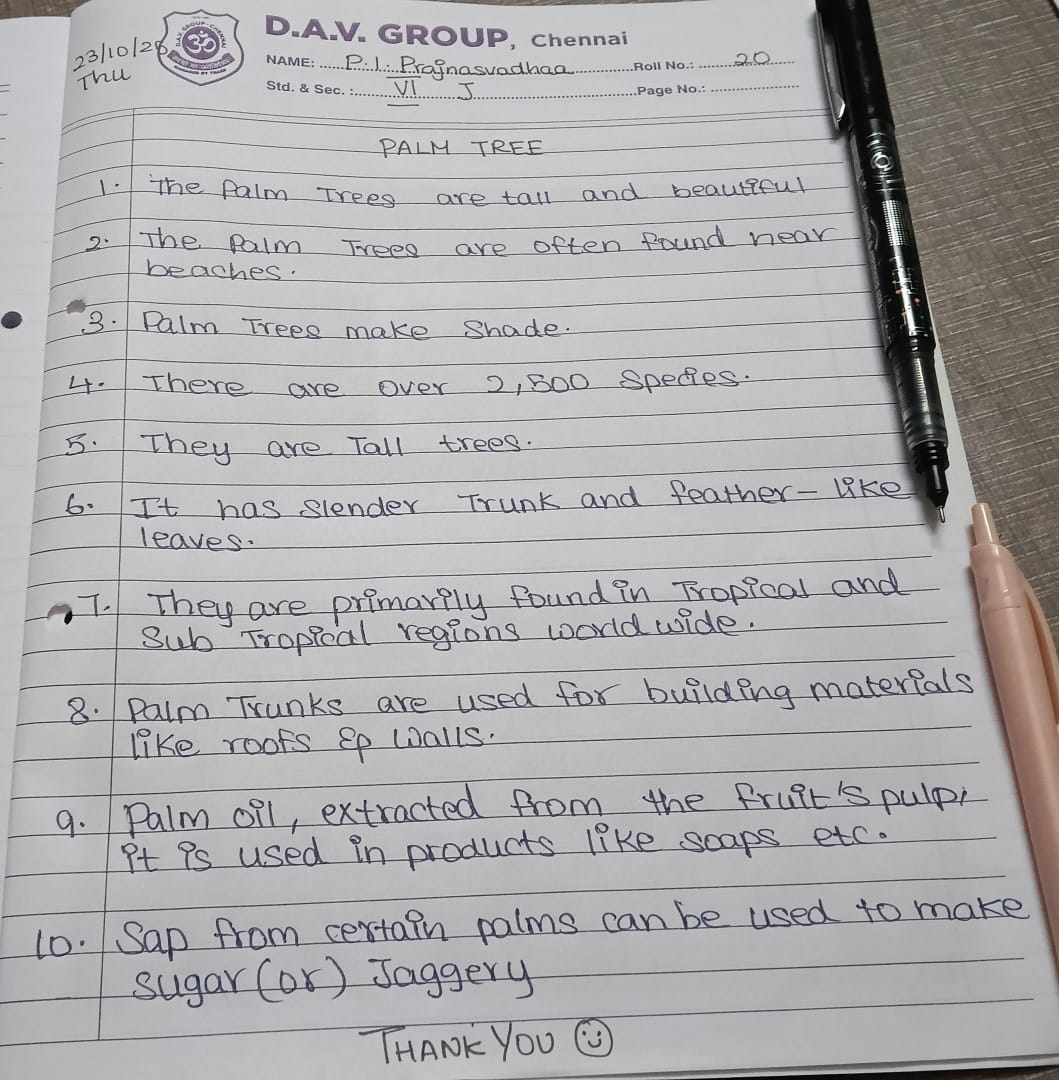 23/10/25
Thu
D.A.V. GROUP, Chennai
NAME: P.I. Prajnasvadhaa Roll No.: 20
Std. & Sec. : VI J Page No.:
PALM TREE
1. The Palm Trees are tall and beautiful
2. The Palm Trees are often found near
beaches.
3. Palm Trees make Shade.
4. There are over 2,500 Species.
5. They are Tall trees.
6. It has slender Trunk and feather-like
leaves.
7. They are primarily found in Tropical and
Sub Tropical regions world wide.
8. Palm Trunks are used for building materials
like roofs & walls.
9. Palm oil, extracted from the fruit's pulp,
it is used in products like soaps etc.
10. Sap from certain palms can be used to make
sugar (or) Jaggery
THANK YOU